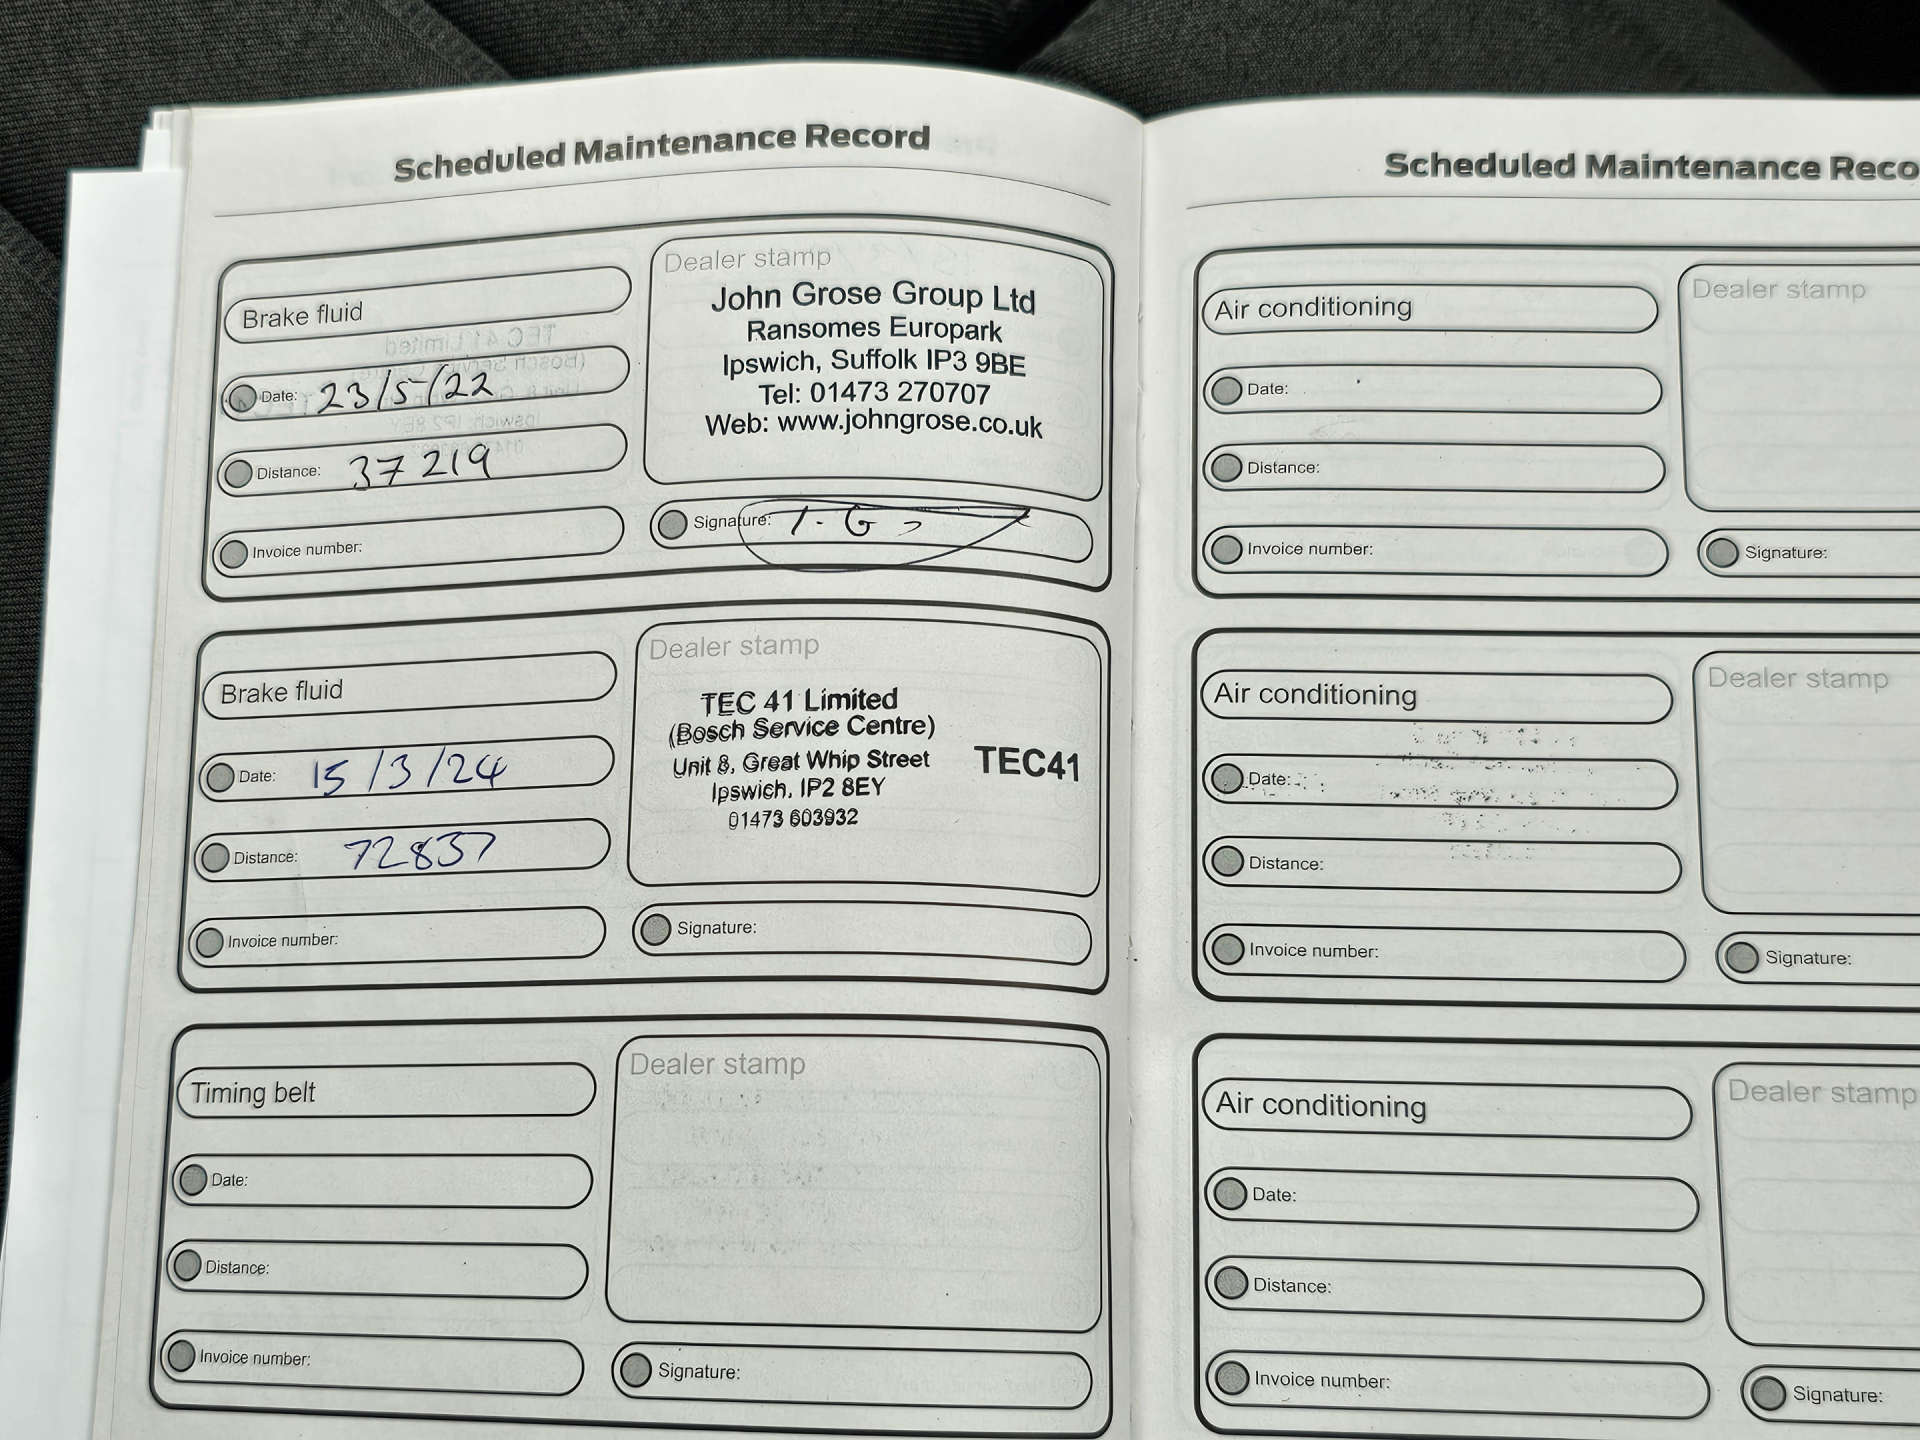 Scheduled Maintenance Record
Brake fluid
Date: 23/5/22
Distance: 37219
Invoice number:
Dealer stamp
John Grose Group Ltd
Ransomes Europark
Ipswich, Suffolk IP3 9BE
Tel: 01473 270707
Web: www.johngrose.co.uk
Signature:
Brake fluid
Date: 15/3/24
Distance: 72837
Invoice number:
Dealer stamp
TEC 41 Limited
(Bosch Service Centre)
Unit 8, Great Whip Street
Ipswich, IP2 8EY
01473 603932
TEC41
Signature:
Timing belt
Date:
Distance:
Invoice number:
Dealer stamp
Signature:
Scheduled Maintenance Reco
Air conditioning
Date:
Distance:
Invoice number:
Dealer stamp
Signature:
Air conditioning
Date:
Distance:
Invoice number:
Dealer stamp
Signature:
Air conditioning
Date:
Distance:
Invoice number:
Dealer stamp
Signature: